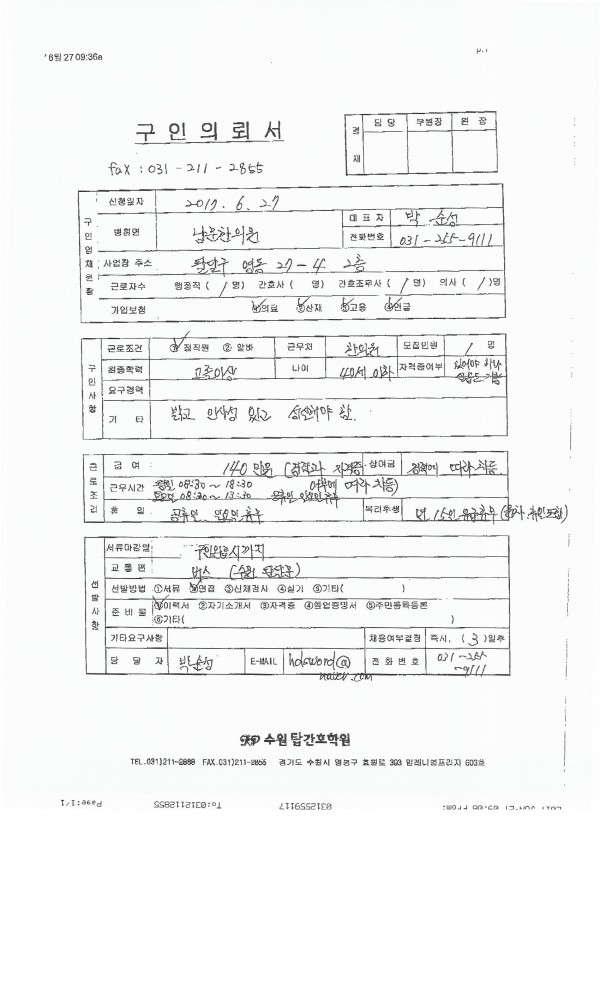 6월 27 09:36a
p.1
구 인 의 뢰 서
결 재 담 당 부원장 원 장
fax : 031 - 211 - 2855
구인업체현황
신청일자 2017. 6. 27
병원명 남문한의원 대 표 자 박 순성
전화번호 031-255-9111
사업장 주소 팔달구 영동 27-4 2층
근로자수 행정직 ( 1 명) 간호사 ( 명) 간호조무사 ( 1 명) 의사 ( 1 )명
가입보험 ①의료 ②산재 ③고용 ④연금
구인사항
근로조건 ① 정직원 ② 알바 근무처 한의원 모집인원 1 명
최종학력 고졸이상 나이 40세 이하 자격증여부 있어야 하나 없음도 가능
요구경력
기 타 밝고 인사성 있고 성실해야 함.
근로조건
급 여 140만원 (경력과 자격증 여부에 따라 차등) 상여금 경력에 따라 차등
근무시간 평일 08:30 ~ 18:30
토요일 08:30 ~ 13:30
휴 일 공휴일, 일요일 휴무 복리후생 년 15일 유급휴무
선발사항
서류마감일 구인완료시까지
교 통 편 버스 (수원 팔달문)
선발방법 ①서류 ②면접 ③신체검사 ④실기 ⑤기타( )
준 비 물 ①이력서 ②자기소개서 ③자격증 ④졸업증명서 ⑤주민등록등본
⑥기타( )
기타요구사항 채용여부결정 즉시, ( 3 )일후
담 당 자 박순성 E-MAIL holsword@ 전 화 번 호 031-255-9111
수원 탑간호학원
TEL.031)211-2888 FAX.031)211-2855 경기도 수원시 영통구 효원로 393 밀레니엄프라자 603호
Page:1/1
To:0312112855
0312559117